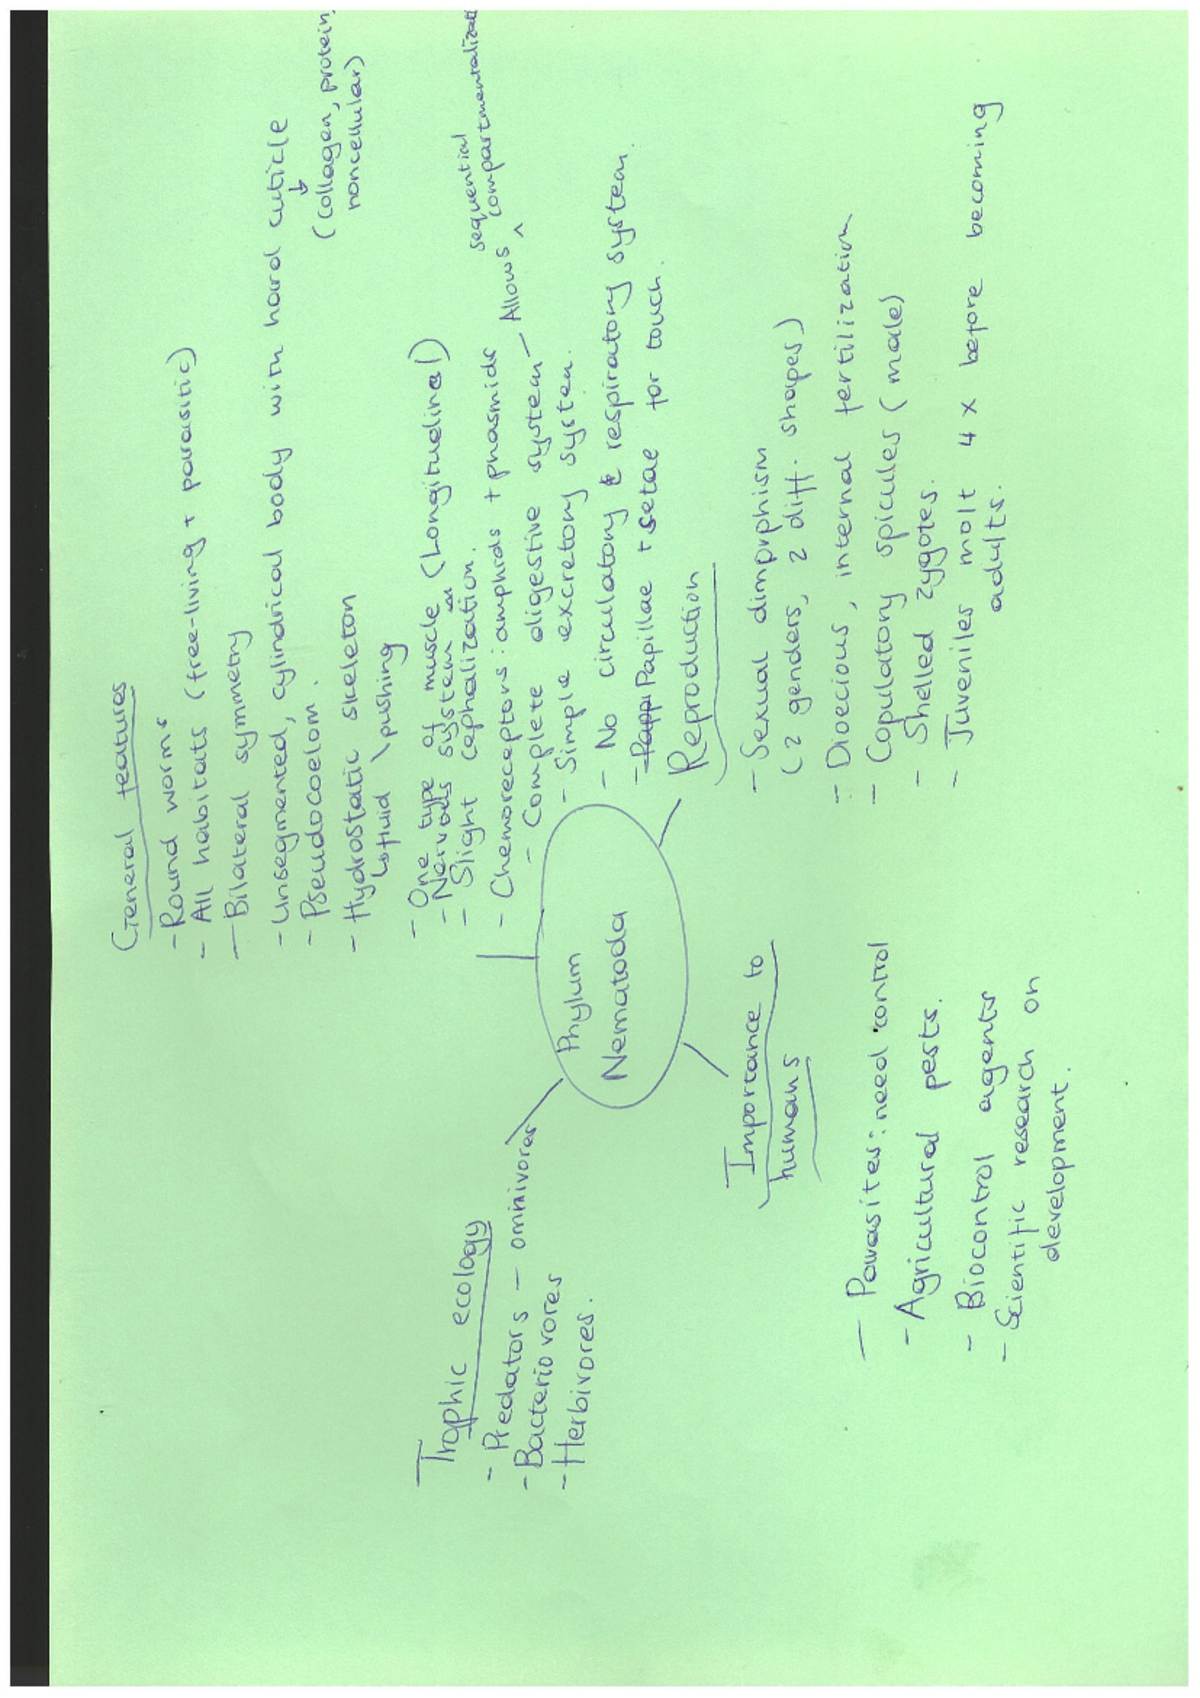 General features
- Round worms
- All habitats (free-living + parasitic)
- Bilateral symmetry
- Unsegmented, cylindrical body with hard cuticle
↓
(collagen, protein,
noncellular)
- Pseudocoelom.
- Hydrostatic skeleton
↳ fluid \ pushing
on
- One type of muscle (Longitudinal)
- Nervous system
- Slight cephalization.
- Chemoreceptors: amphids + phasmids
- Complete digestive system — Allows ^ sequential
compartmentalization
- Simple excretory system.
- No circulatory & respiratory system.
- Papillae + setae for touch.
Phylum
Nematoda
Reproduction
- Sexual dimorphism
(2 genders, 2 diff. shapes)
- Dioecious, internal fertilization
- Copulatory spicules (male)
- Shelled zygotes.
- Juveniles molt 4 x before becoming
adults.
Trophic ecology
- Predators - omnivores
- Bacteriovores
- Herbivores.
Importance to
humans
- Parasites: need control
- Agricultural pests.
- Biocontrol agents
- Scientific research on
development.